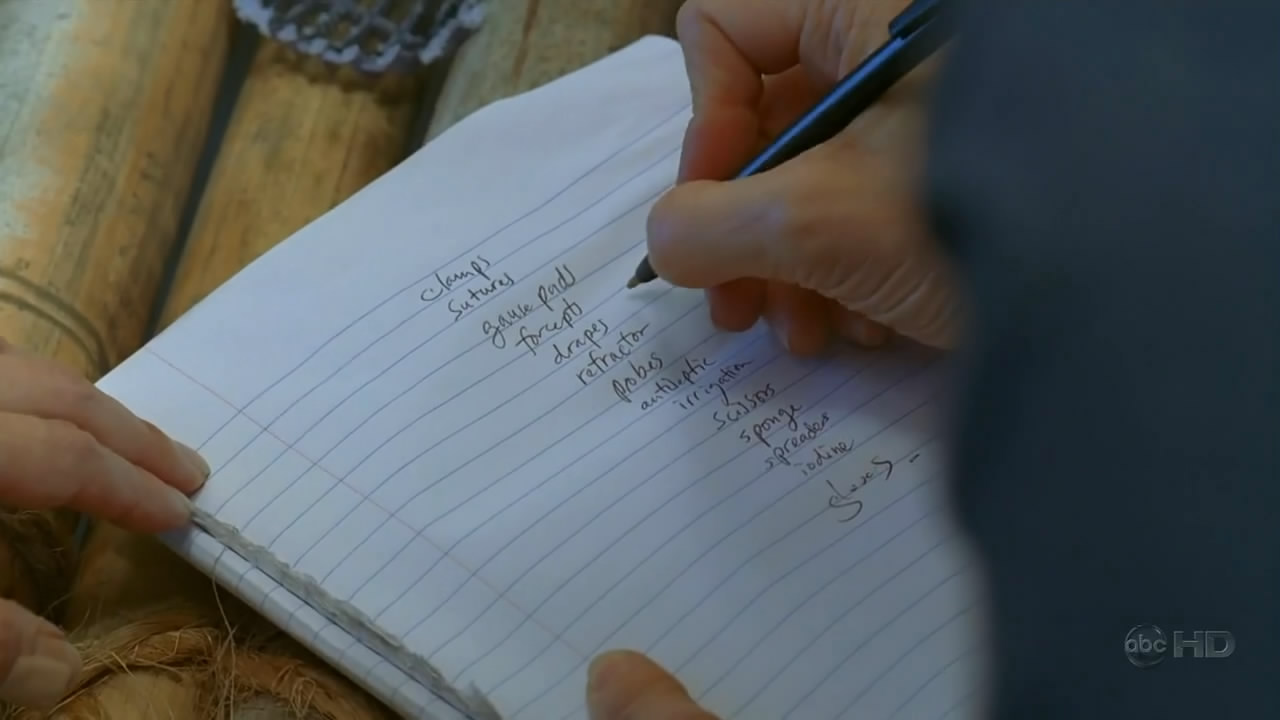 clamps
sutures
gauze pads
forceps
drapes
refractor
probes
antiseptic
irrigation
scissors
sponge
spreader
iodine
gloves -
abc HD